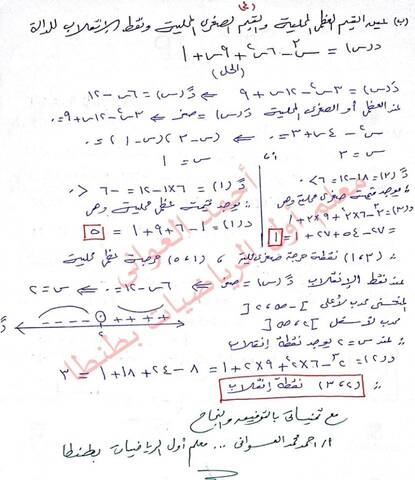 (ب) عين القيم العظمى المحلية والقيم الصغرى المحلية ونقط الانقلاب للدالة
د(س) = س٣ - ٦س٢ + ٩س + ١
(الحل)
دَ(س) = ٣س٢ - ١٢س + ٩ ⇐ دً(س) = ٦س - ١٢
عند العظمى أو الصغرى المحلية دَ(س) = صفر ⇐ ٣س٢ - ١٢س + ٩ = ٠
س٢ - ٤س + ٣ = ٠ ⇐ (س - ٣)(س - ١) = ٠
س = ٣ ، س = ١
دً(٣) = ١٨ - ١٢ = ٦ > ٠
∴ يوجد قيمة صغرى محلية وهى
د(٣) = ٣٣ - ٦×٣٢ + ٩×٣ + ١
= ٢٧ - ٥٤ + ٢٧ + ١ = ١
دً(١) = ٦×١ - ١٢ = -٦ < ٠
∴ يوجد قيمة عظمى محلية وهى
د(١) = ١ - ٦ + ٩ + ١ = ٥
∴ (٣، ١) نقطة حرجة صغرى محلية ، (١، ٥) حرجة عظمى محلية
عند نقط الانقلاب دً(س) = صفر ⇐ ٦س - ١٢ = ٠ ⇐ س = ٢
المنحنى محدب لأعلى ]-∞، ٢[
محدب لأسفل ]٢، ∞[
- - - - ٠ + + + +
٢
دً
∴ عند س = ٢ يوجد نقطة انقلاب
د(٢) = ٢٣ - ٦×٢٢ + ٩×٢ + ١ = ٨ - ٢٤ + ١٨ + ١ = ٣
∴ (٢، ٣) نقطة انقلاب
مع تمنياتى بالتوفيق والنجاح
أ/ احمد محمد العوانى ... معلم أول الرياضيات بطنطا
أحمد العوانى
معلم أول الرياضيات بطنطا